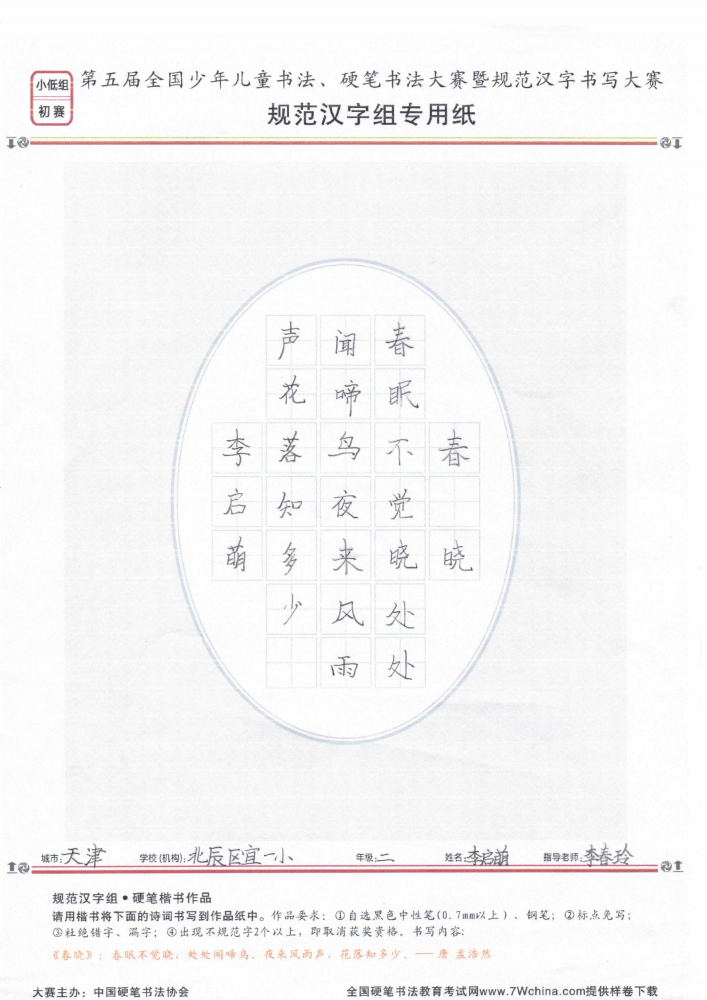 小低组
初赛
第五届全国少年儿童书法、硬笔书法大赛暨规范汉字书写大赛
规范汉字组专用纸
春晓
春眠不觉晓处处
闻啼鸟夜来风雨
声花落知多少
李启萌
城市:天津 学校(机构):北辰区宜一小 年级:二 姓名:李启萌 指导老师:李春玲
规范汉字组•硬笔楷书作品
请用楷书将下面的诗词书写到作品纸中。作品要求：①自选黑色中性笔(0.7mm以上）、钢笔；②标点免写；
③杜绝错字、漏字；④出现不规范字2个以上，即取消获奖资格。书写内容：
《春晓》：春眠不觉晓，处处闻啼鸟。夜来风雨声，花落知多少。——唐 孟浩然
大赛主办：中国硬笔书法协会 全国硬笔书法教育考试网www.7Wchina.com提供样卷下载